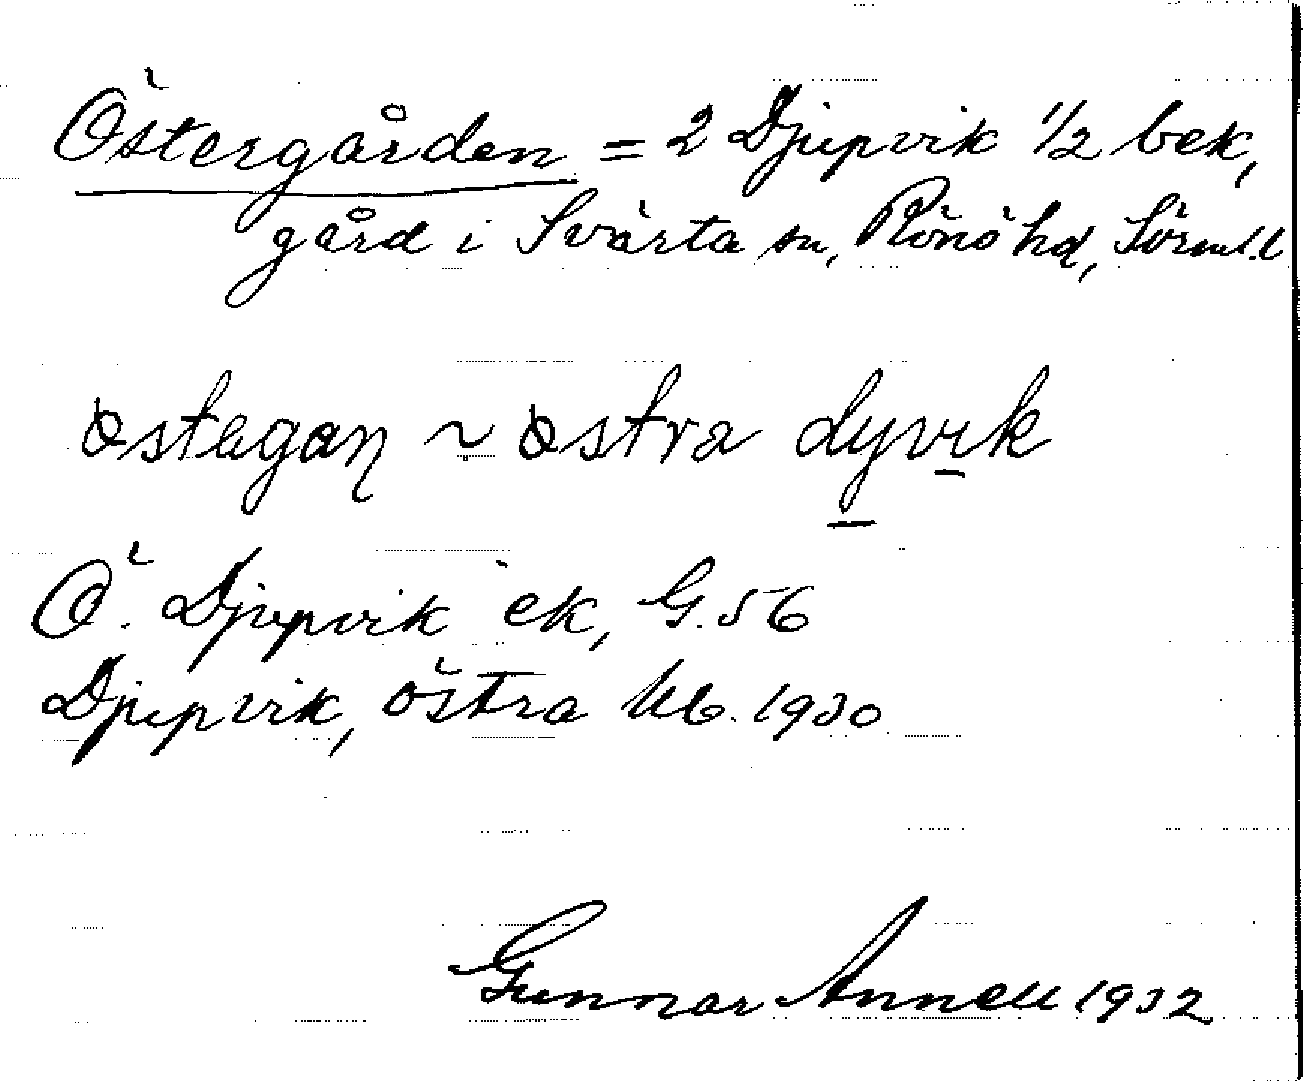 Östergården = 2 Djupvik 1/2 bek,
gård i Svärta sn, Rönö hd, Sörml. l
östagaɳ ~ östra dyvik
Ö. Djupvik ek, G. 56
Djupvik, östra Ub. 1930
Gunnar Annell 1932